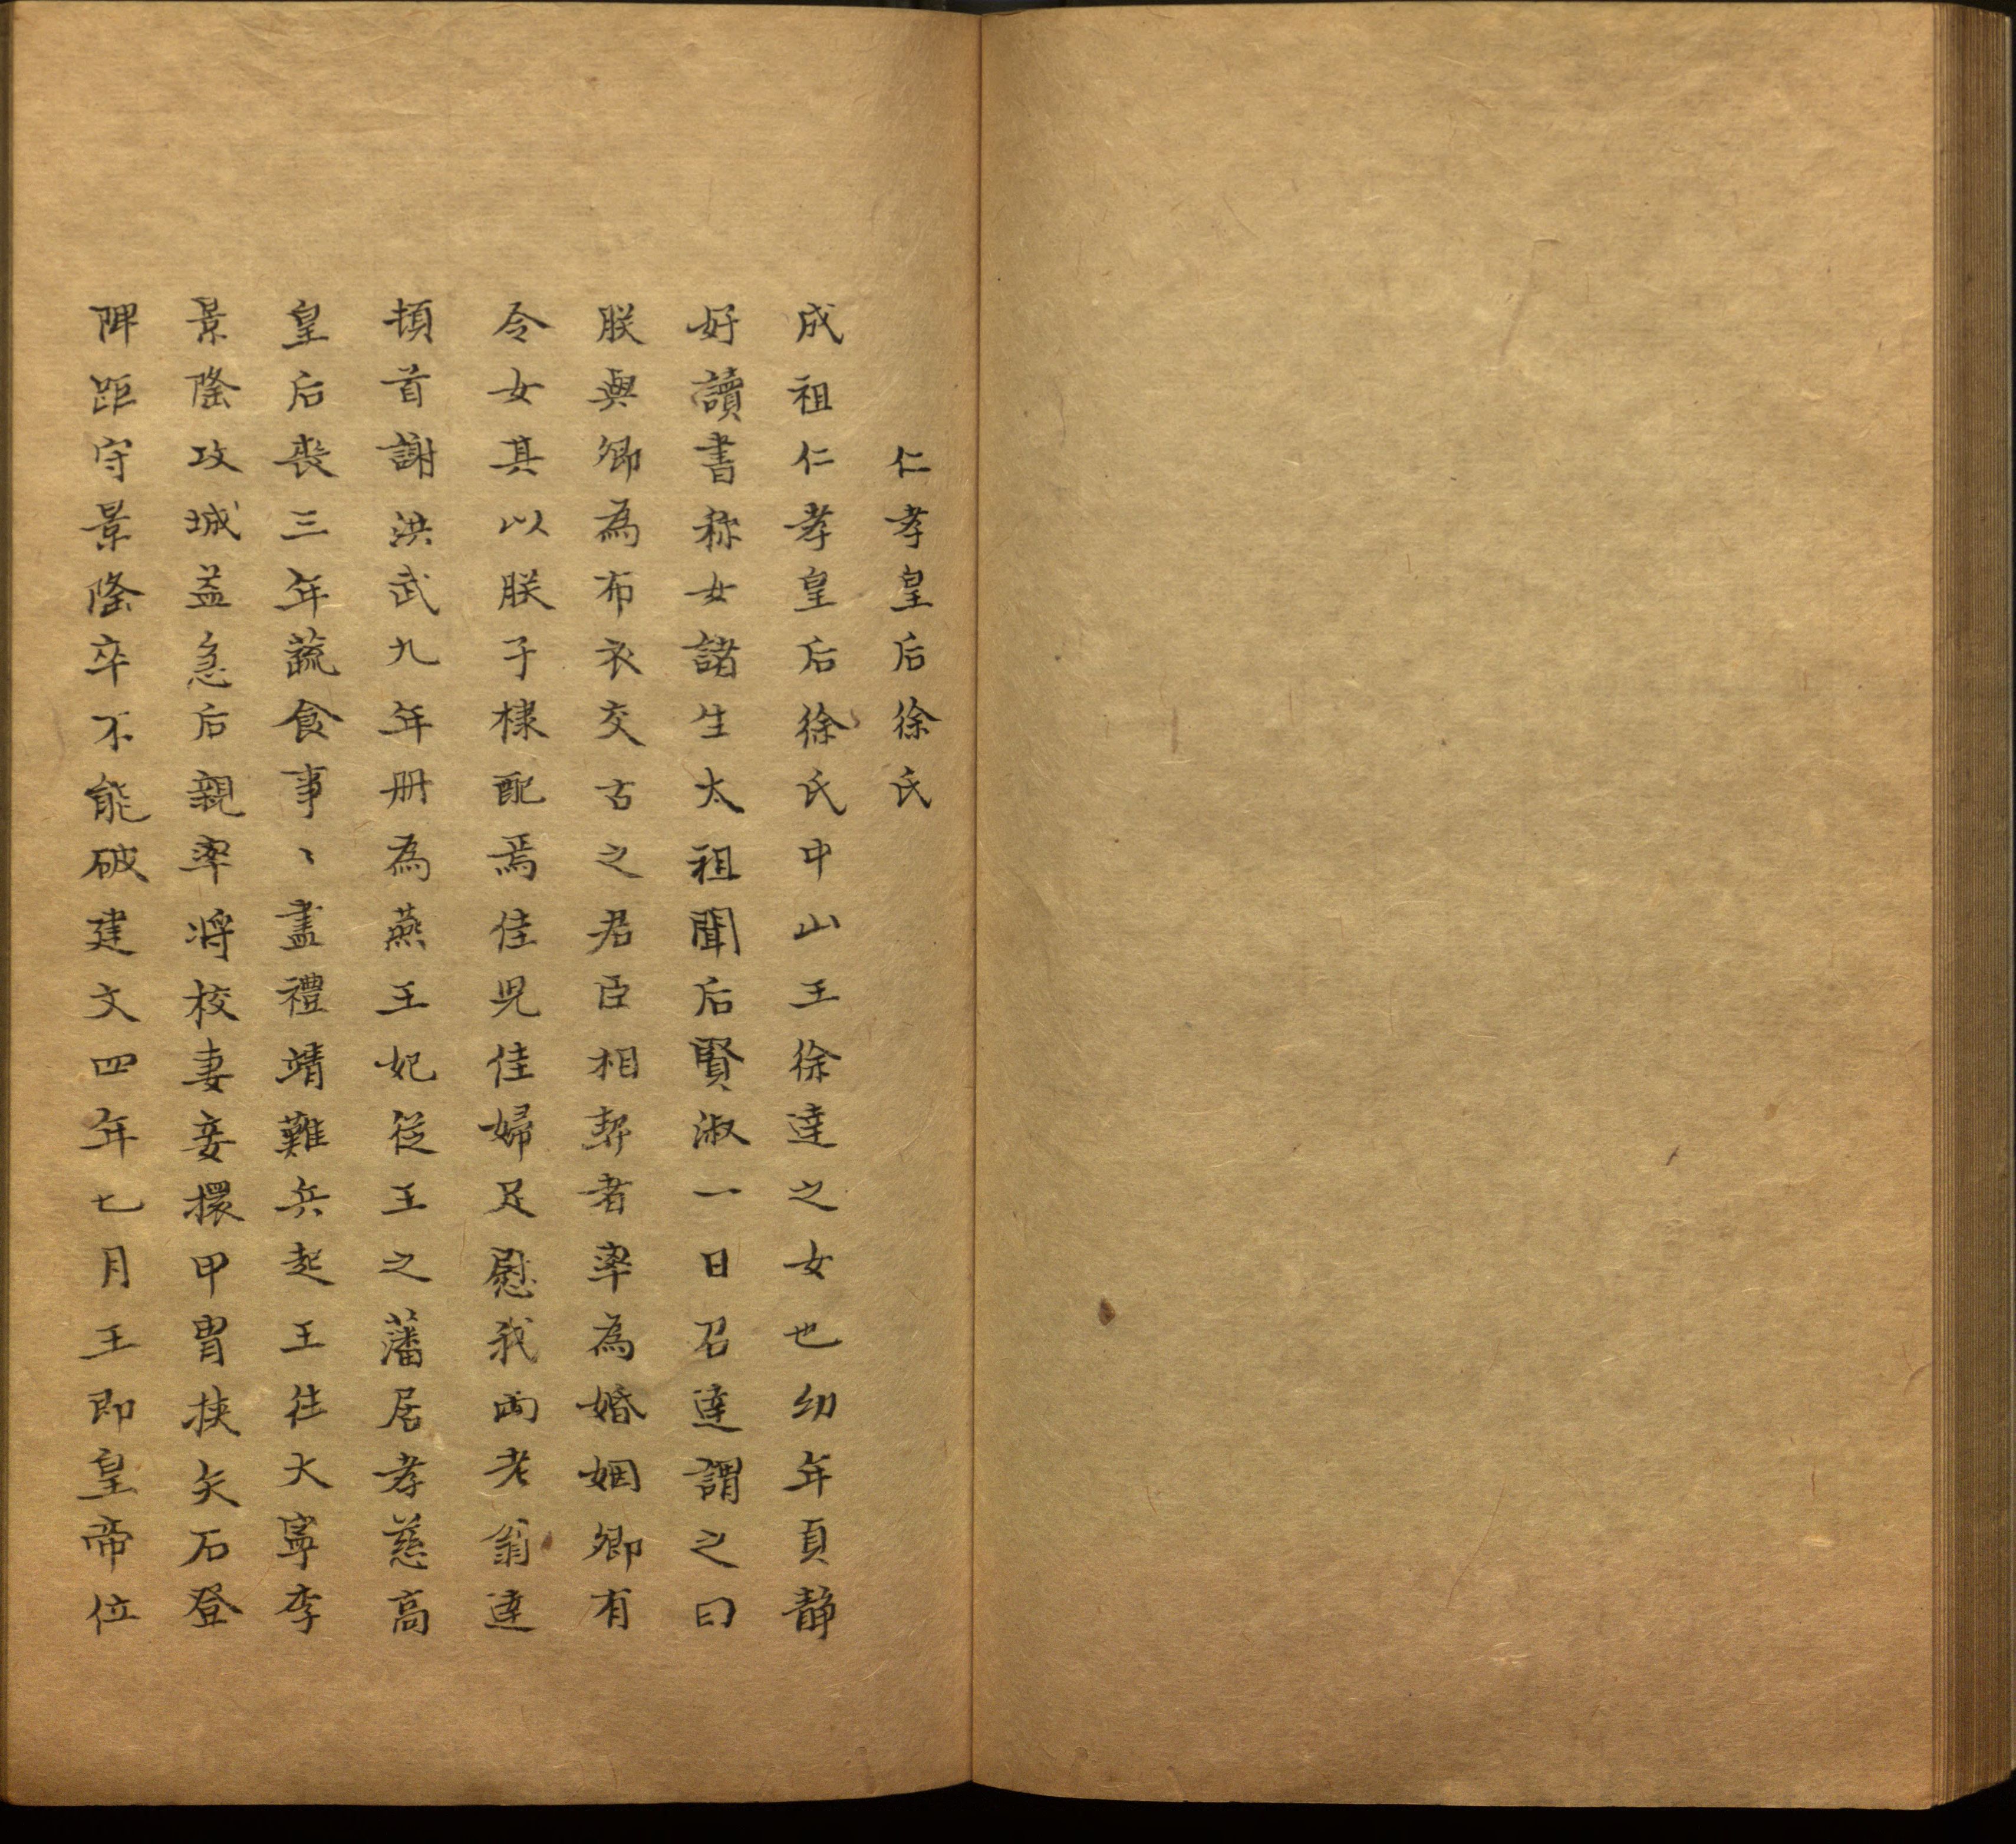 仁孝皇后徐氏
成祖仁孝皇后徐氏中山王徐達之女也幼年貞静
好讀書称女諸生太祖聞后賢淑一日召達謂之曰
朕與卿為布衣交古之君臣相契者率為婚姻卿有
令女其以朕子棣配焉佳児佳婦足慰我両老翁達
頓首謝洪武九年册為燕王妃從王之藩居孝慈高
皇后喪三年蔬食事〻盡禮靖難兵起王往大寧李
景隆攻城益急后親率將校妻妾擐甲冑挟矢石登
陴距守景隆卒不能破建文四年七月王即皇帝位